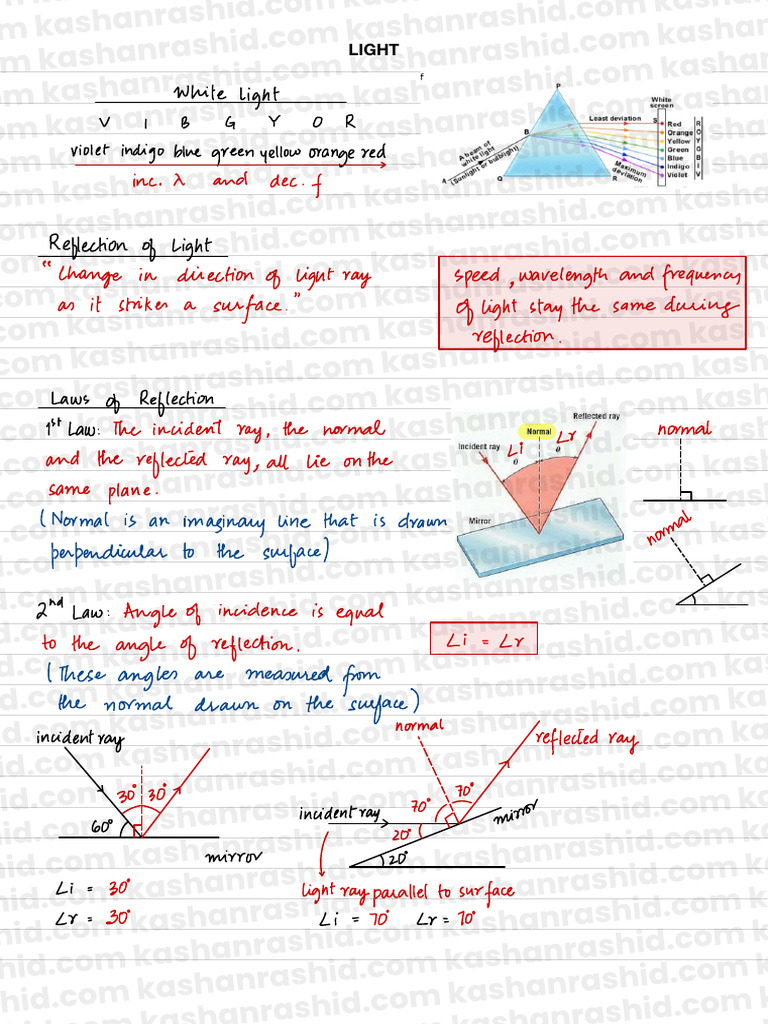 LIGHT
f
White light
V I B G Y O R
violet indigo blue green yellow orange red
inc. λ and dec. f
P
White screen
Least deviation
S
Red
Orange
Yellow
Green
Blue
Indigo
Violet
R O Y G B I V
B
A beam of white light
(Sunlight or bulblight)
Maximum deviation
A
Q
R
Reflection of Light
"Change in direction of light ray
as it strikes a surface."
speed, wavelength and frequency
of light stay the same during
reflection.
Laws of Reflection
1st Law: The incident ray, the normal
and the reflected ray, all lie on the
same plane.
(Normal is an imaginary line that is drawn
perpendicular to the surface)
Reflected ray
Normal
Incident ray
∠i
∠r
θ θ
Mirror
normal
normal
2nd Law: Angle of incidence is equal
to the angle of reflection.
∠i = ∠r
(These angles are measured from
the normal drawn on the surface)
incident ray
30° 30°
60°
mirror
∠i = 30°
∠r = 30°
normal
reflected ray
70° 70°
incident ray
mirror
20°
20°
light ray parallel to surface
∠i = 70° ∠r = 70°
kashanrashid.com